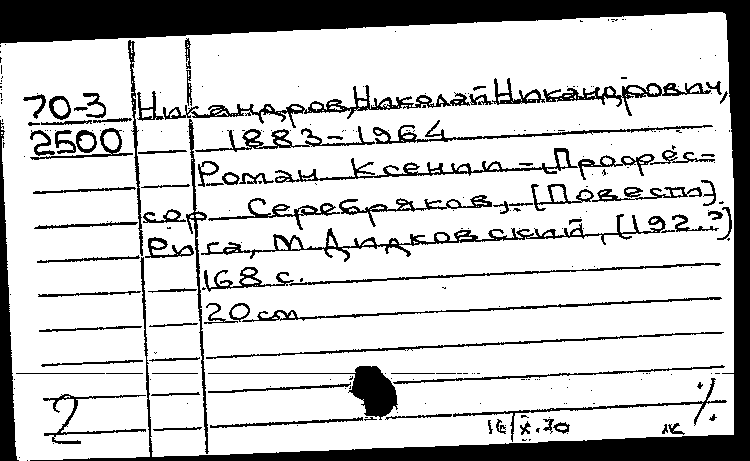 70-3 Никандров, Николай Никандрович,
2500 1883-1964
Роман Ксении = Профес=
сор Серебряков. [Повести].
Рига, М. Дидковский, [192.?]
168 с.
20 см.
2
16/X.70